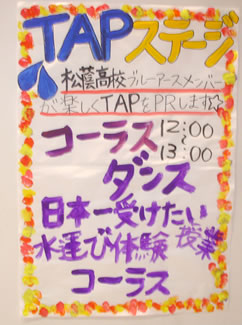 TAPステージ
松蔭高校ブルーアースメンバー
が楽しくTAPをPRします☆
コーラス 12:00
~
13:00
ダンス
日本一受けたい
水運び体験 授業
コーラス